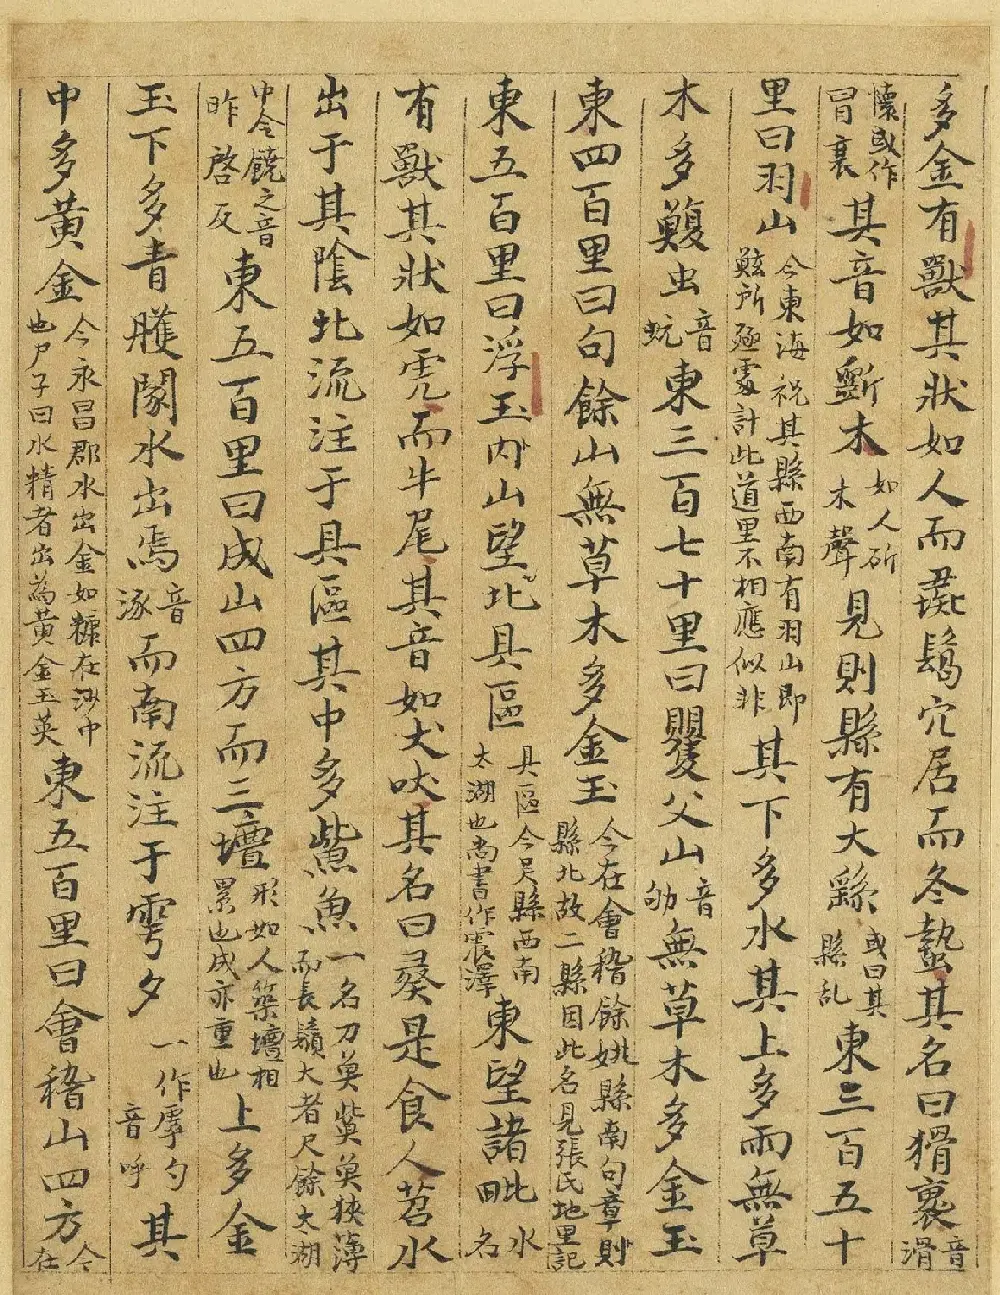 多金有獸其狀如人而彘鬣穴居而冬蟄其名曰猾褢音滑
懷或作冐裹其音如斲木如人斫木聲見則縣有大繇或曰其縣乱東三百五十
里曰羽山今東海祝其縣西南有羽山即鯀所殛處計此道里不相應似非其下多水其上多雨無草
木多蝮虫音蚖東三百七十里曰瞿父山音劬無草木多金玉
東四百里曰句餘山無草木多金玉今在會稽餘姚縣南句章縣北故二縣因此名見張氏地里記
東五百里曰浮玉山望北具區具區今吴縣西南太湖也尚書作震澤東望諸毗水名
有獸其狀如虎而牛尾其音如犬吠其名曰彘是食人苕水
出于其陰北流注于具區其中多鮆魚一名刀莫鮆莫狹薄而長鬚大者尺餘太湖
中今饒之音昨啓反東五百里曰成山四方而三壇形如人築壇相累也成亦重也上多金
玉下多青雘閡水出焉音涿而南流注于雩夕一作雩勺音呼其
中多黄金今永昌郡水出金如糠在沙中也尸子曰水精者出為黄金玉英東五百里曰會稽山四方今在